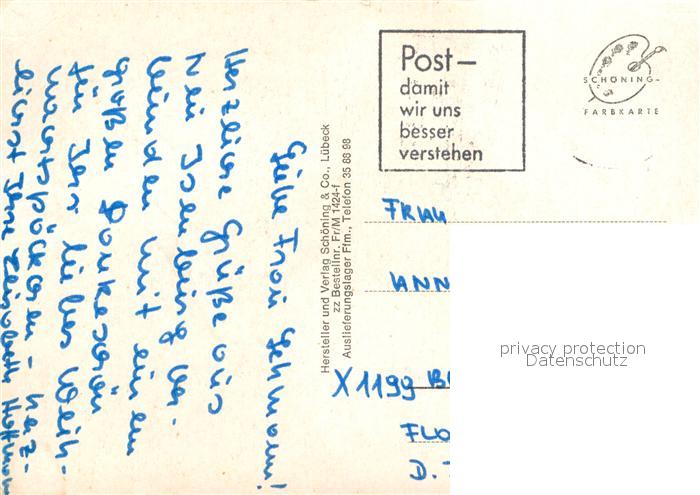 Liebe Frau Lehmann!
Herzliche Grüße aus
Neu Isenburg ver-
binden mit einem
großen Dankeschön
für Ihr liebes Weih-
nachtspäckchen – herz-
lichst Ihre Elisabeth Hoffmann
Hersteller und Verlag Schöning & Co., Lübeck
zz Bestellnr. Fr/M 1424-f
Auslieferungslager Ffm., Telefon 35 86 98
Post–
damit
wir uns
besser
verstehen
SCHÖNING-
FARBKARTE
FRAU
ANN
X1199 B
FLO
D.
privacy protection
Datenschutz